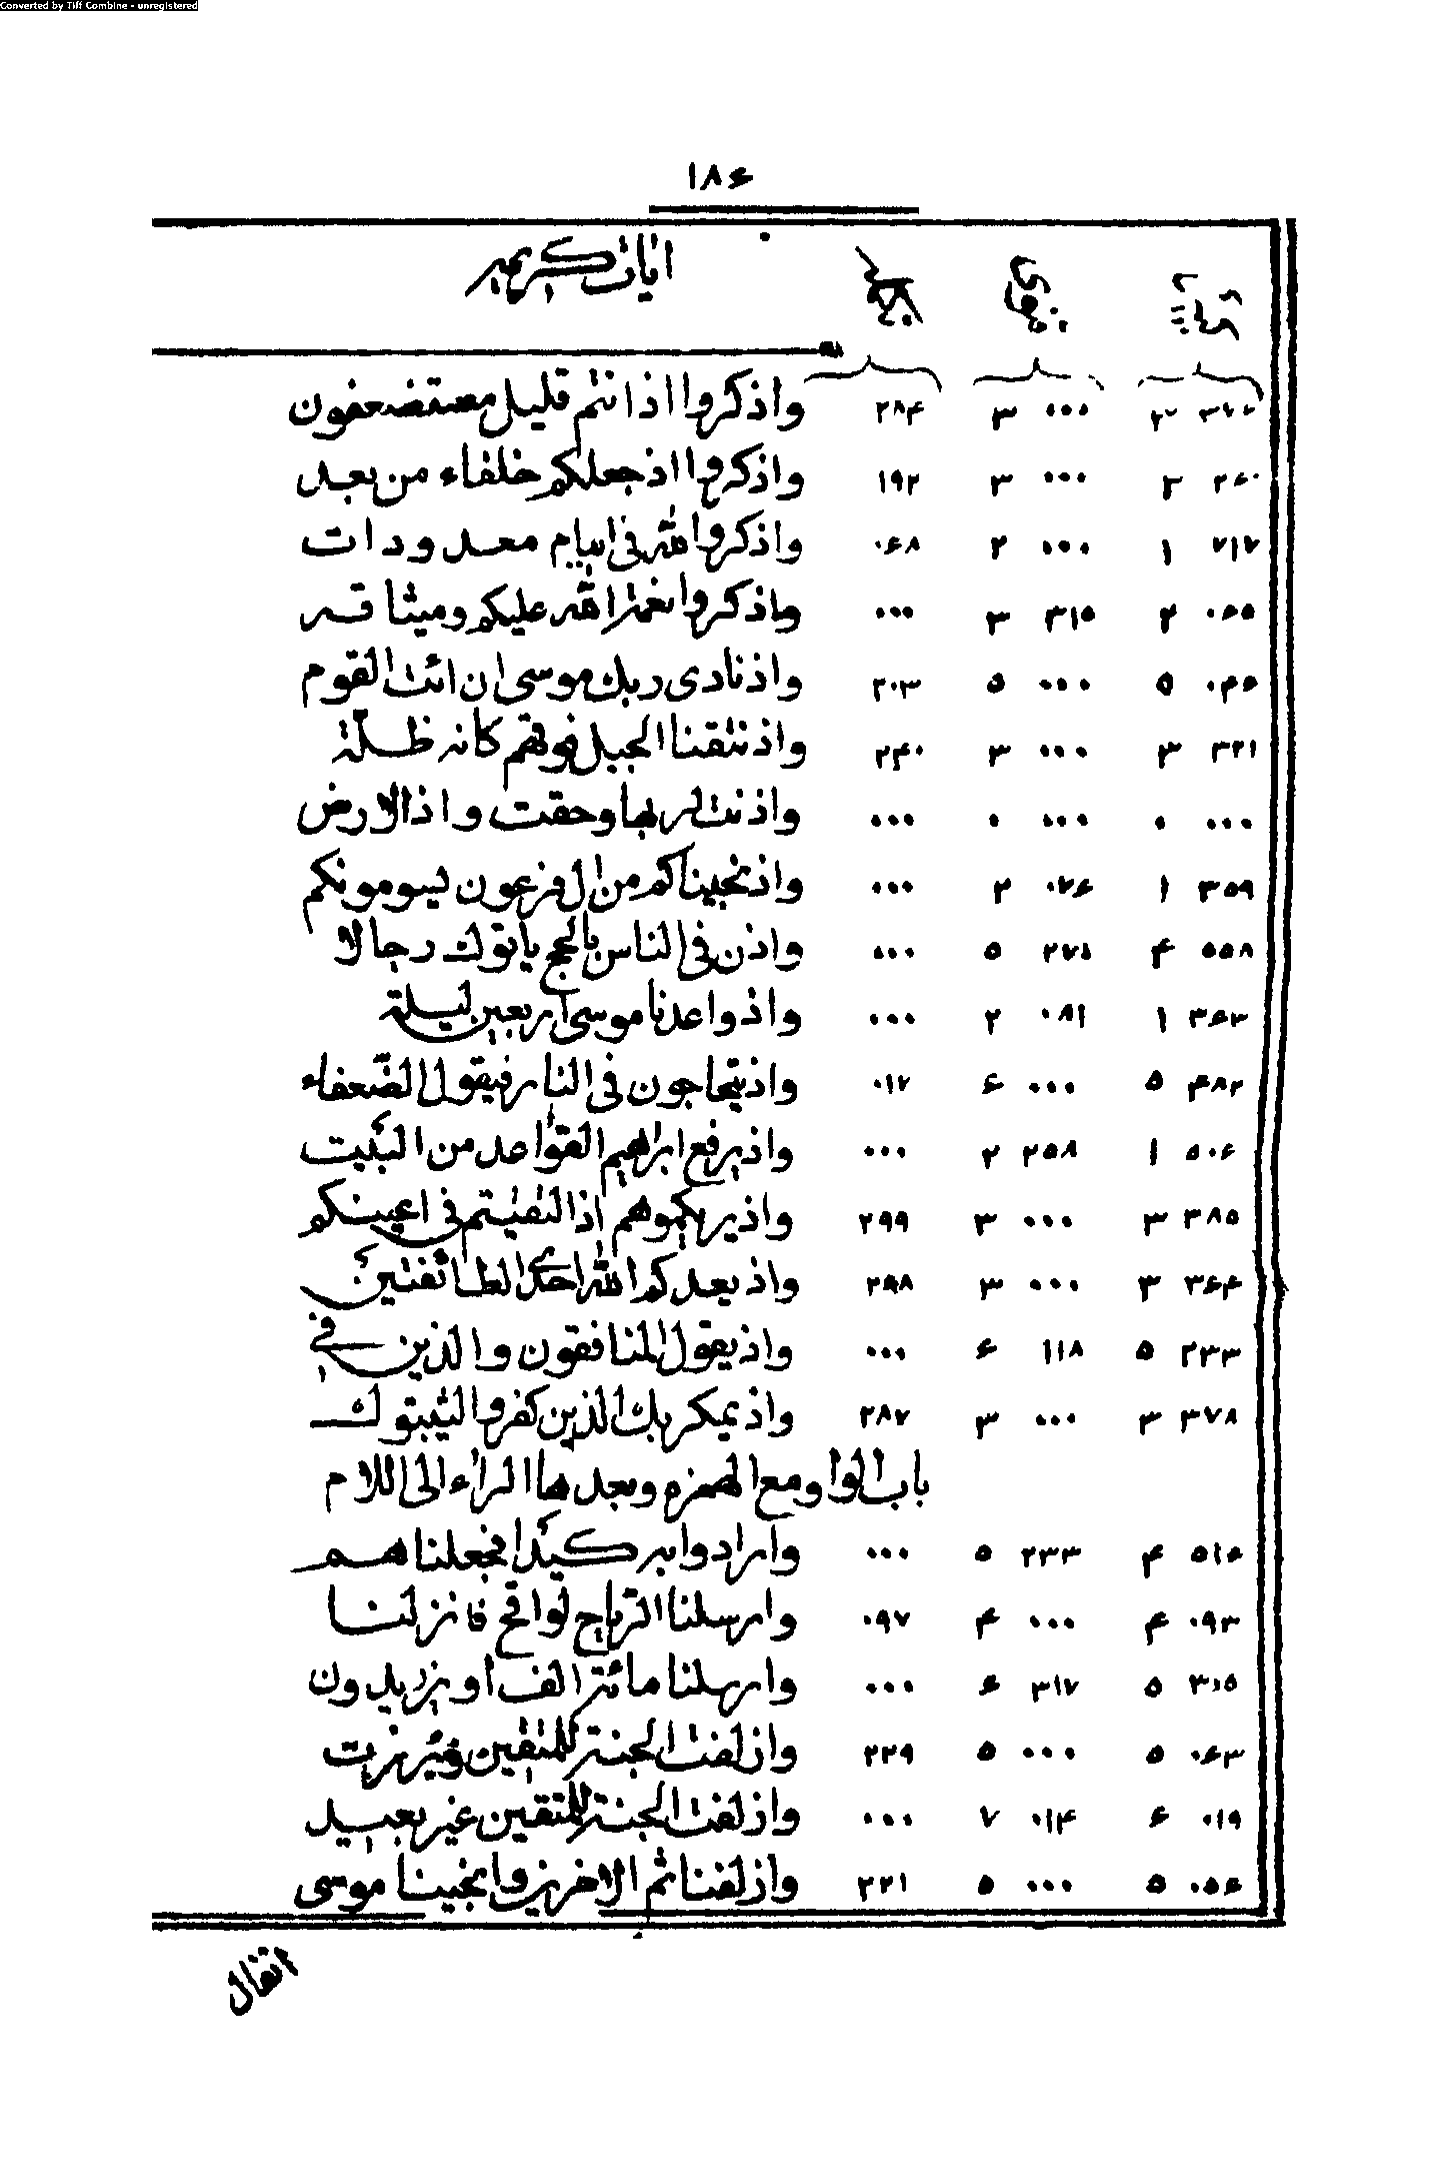 Converted by Tiff Combine - unregistered
۱۸۶
ایات کریمه
۳ ۰۰۰ ۳ ۲۸۴ واذکروا اذ انتم قلیل مستضعفون
۲۶۰ ۳ ۰۰۰ ۳ ۱۹۲ واذکروا اذ جعلکم خلفاء من بعد
۷۱۷ ۱ ۰۰۰ ۲ ۰۶۸ واذکروا الله فی ایام معدودات
۰۶۵ ۲ ۳۱۵ ۳ ۰۰۰ واذکروا نعمة الله علیکم ومیثاقه
۰۴۶ ۵ ۰۰۰ ۵ ۲۰۳ واذ نادی ربک موسی ان ائت القوم
۳۲۱ ۳ ۰۰۰ ۳ ۲۴۰ واذ نتقنا الجبل فوقهم کانه ظلّة
۰۰۰ ۰ ۰۰۰ ۰ ۰۰۰ واذنت لربها وحقت واذ الارض
۳۵۹ ۱ ۰۷۶ ۲ ۰۰۰ واذ نجیناکم من ال فرعون یسومونکم
۵۵۸ ۴ ۲۷۱ ۵ ۰۰۰ واذن فی الناس بالحج یاتوک رجالا
۳۶۳ ۱ ۰۸۱ ۲ ۰۰۰ واذ واعدنا موسی اربعین لیلة
۴۸۲ ۵ ۰۰۰ ۶ ۰۱۷ واذ یتحاجون فی النار فیقول الضّعفاء
۵۰۶ ۱ ۲۵۸ ۲ ۰۰۰ واذ یرفع ابراهیم القواعد من البیت
۳۸۵ ۳ ۰۰۰ ۳ ۲۹۹ واذ یریکموهم اذ التقیتم فی اعینکم
۳۶۴ ۳ ۰۰۰ ۳ ۲۹۸ واذ یعدکم الله احدی الطائفتین
۲۳۳ ۵ ۱۱۸ ۶ ۰۰۰ واذ یقول المنافقون والذین فی
۳۷۸ ۳ ۰۰۰ ۳ ۲۸۷ واذ یمکر بک الذین کفروا لیثبتوک
باب الواو مع الهمزه وبعدها الراء الی اللام
۵۱۶ ۴ ۲۳۳ ۵ ۰۰۰ وارادوا به کیدًا فجعلناهم
۰۹۳ ۴ ۰۰۰ ۴ ۰۹۷ وارسلنا الریاح لواقح فانزلنا
۳۰۵ ۵ ۳۱۷ ۶ ۰۰۰ وارسلنا مائة الف او یزیدون
۰۶۳ ۵ ۰۰۰ ۵ ۲۲۹ وازلفت الجنة للمتقین وبرزت
۰۱۹ ۶ ۰۱۴ ۷ ۰۰۰ وازلفت الجنة للمتقین غیر بعید
۰۵۶ ۵ ۰۰۰ ۵ ۲۲۱ وازلفنا ثم الاخرین وانجینا موسی
انفال